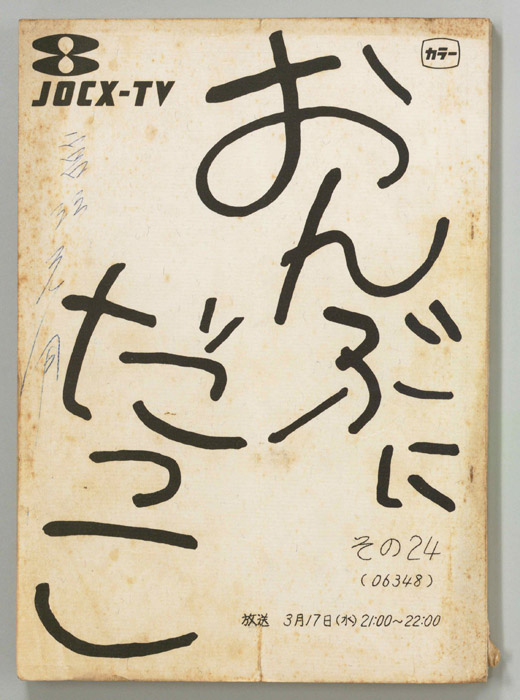 8
JOCX-TV
カラー
おんぶに
だっこ
その24
(06348)
放送 3月17日(水)21:00~22:00